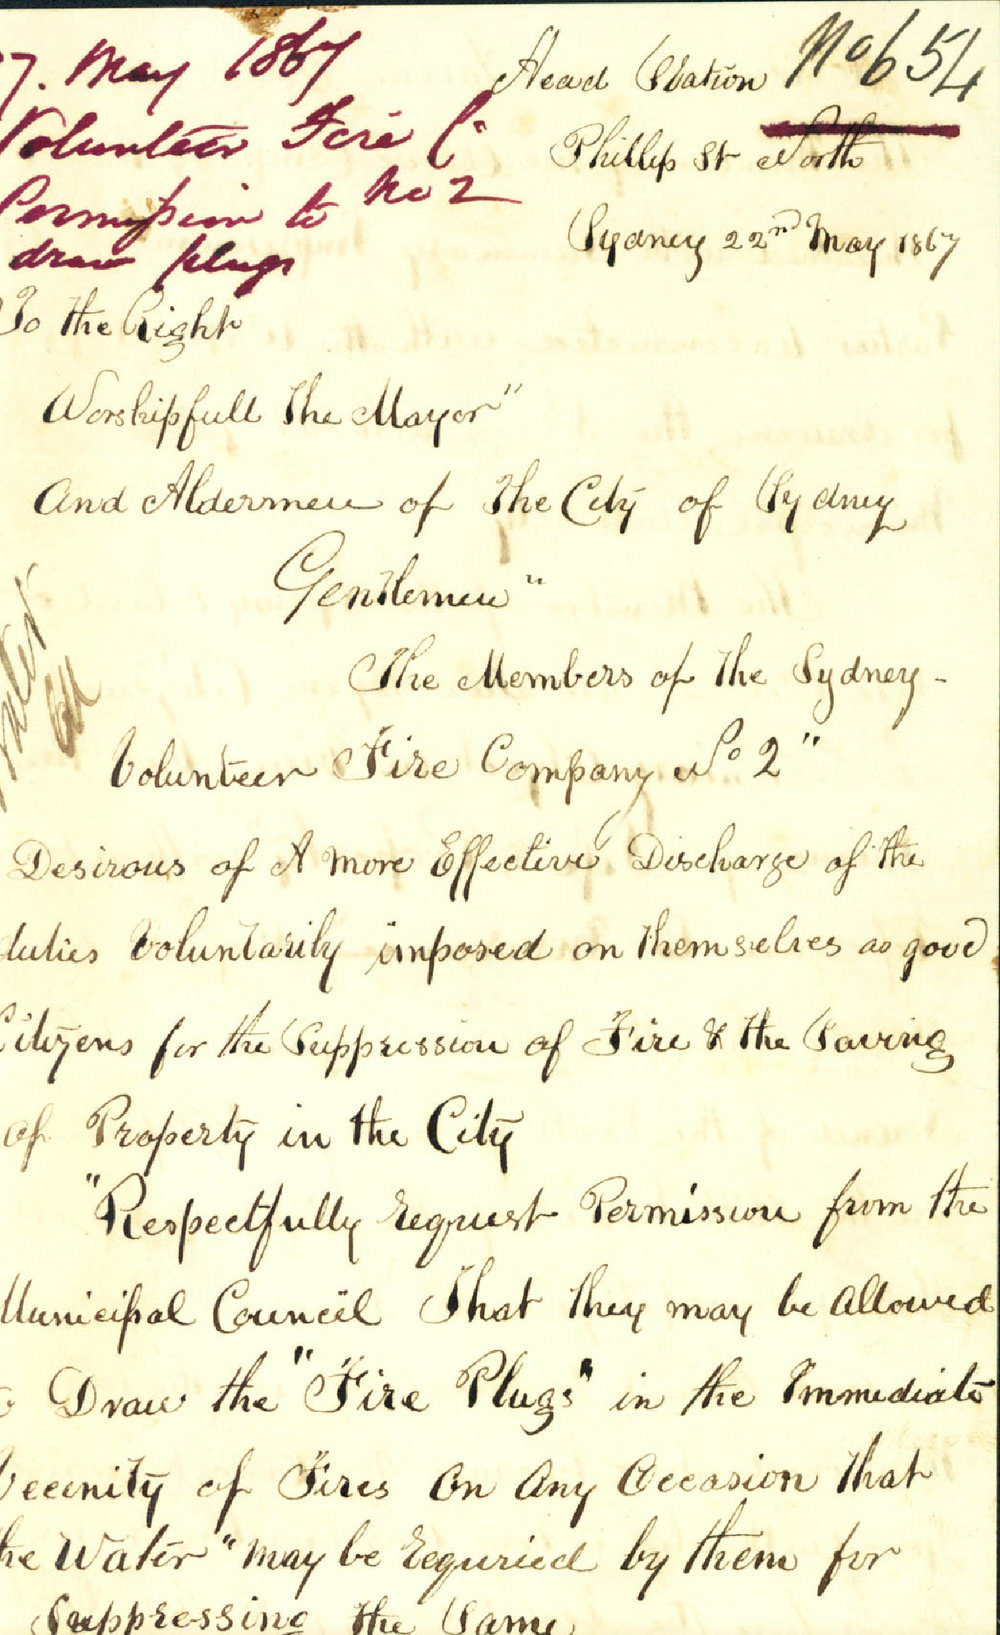 7. May 1867
Volunteer Fire Co
No 2
Permission to
draw plugs
No 654
Head Station
Phillip St North
Sydney 22nd May 1867
To the Right
Worshipfull The Mayor"
And Aldermen of The City of Sydney
Gentlemen"
The Members of the Sydney -
Volunteer Fire Company No 2"
Desirous of A More Effective Discharge of the
duties Voluntarily imposed on themselves as good
Citizens for the Suppression of Fire & the Saving
of Property in the City
"Respectfully request Permission from the
Municipal Council That they may be Allowed
Draw the "Fire Plugs" in the Immediate
Vecenity of Fires On Any Occasion that
the Water" may be requried by them for
Suppressing the Same